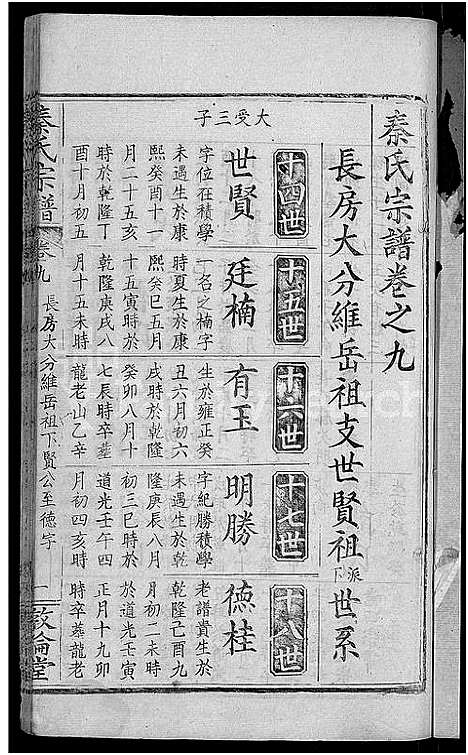 秦氏宗譜卷之九
長房大分維岳祖支世賢祖派下世系
大受三子
十四世
世賢
字位在積學
未遇生於康
熙癸酉十一
月二十五亥
時於乾隆丁
酉十月初五
十五世
廷楠
一名之楠字
時夏生於康
熙癸巳五月
十五寅時於
乾隆庚戌八
月十五未時
十六世
有玉
生於雍正癸
丑六月初六
戌時於乾隆
癸卯八月十
七辰時卒葬
龍老山乙辛
十七世
明勝
字紀勝積學
未遇生於乾
隆庚辰八月
初三巳時於
道光壬午四
月初四亥時
十八世
德桂
老譜貴生於
乾隆己酉九
月初二未時
於道光壬寅
正月十九卯
時卒葬龍老
秦氏宗譜
卷九
長房大分維岳祖下賢公至德字
一
敦倫堂